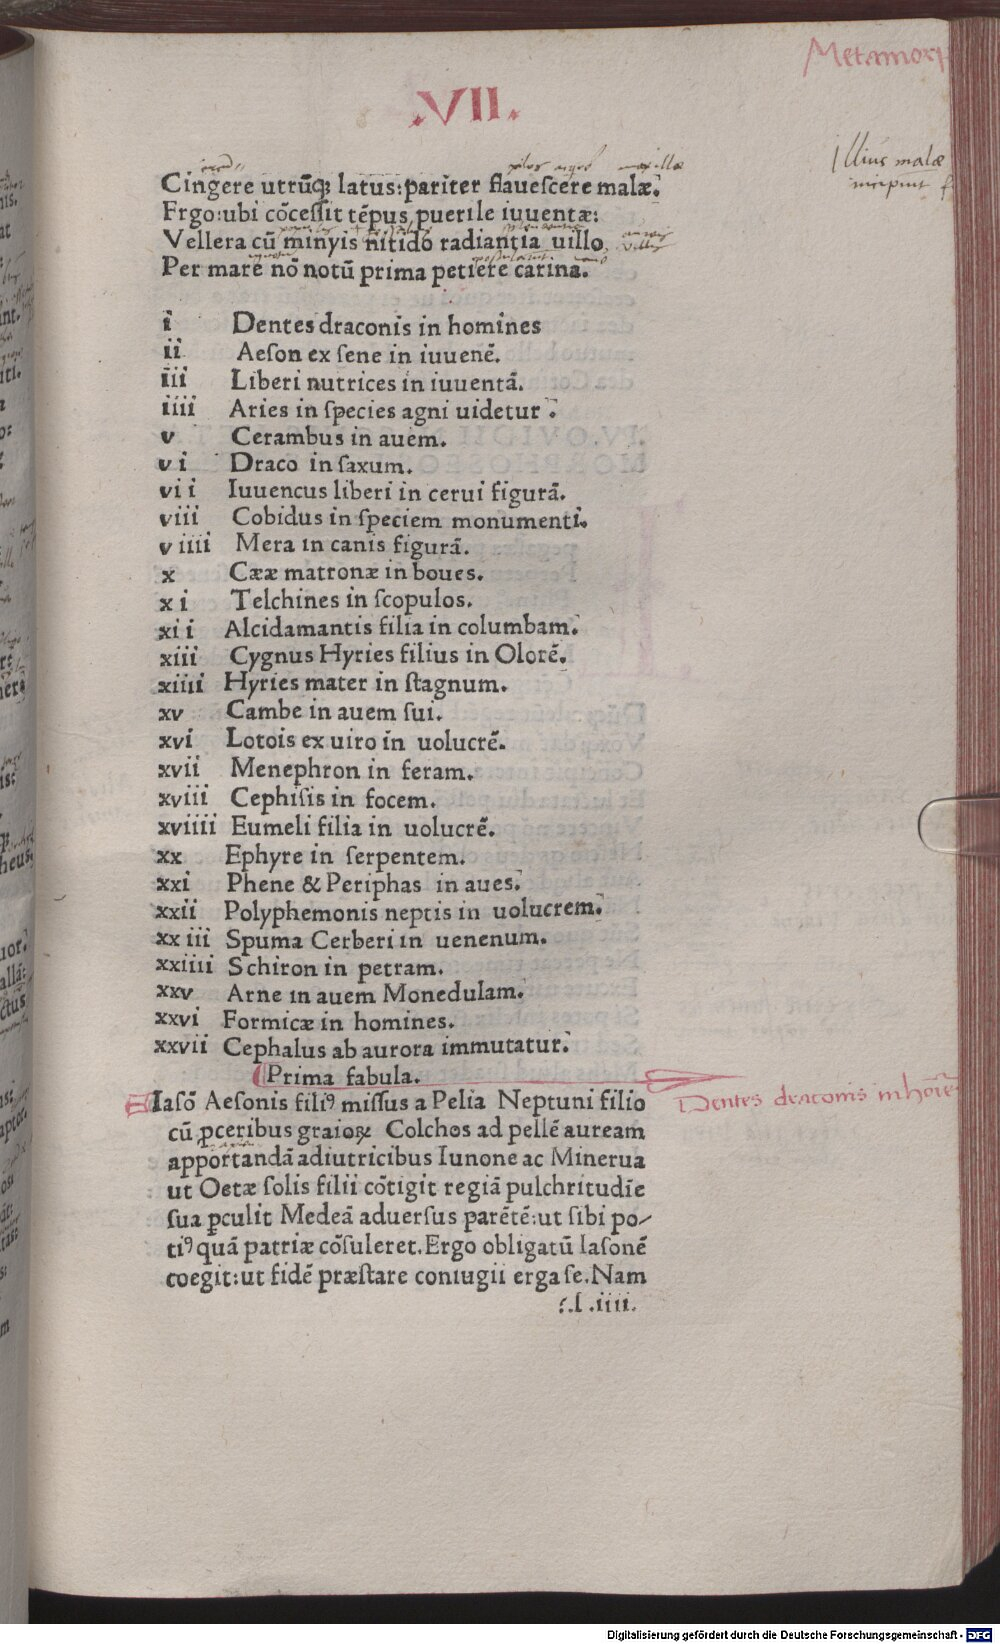 Metamor
.VII.
Illius malæ
incipiunt
Cingere utrũq; latus: pariter flaueſcere malæ.
Frgo: ubi cõceſſit tẽpus puerile iuuentæ:
Vellera cũ minyis nitido radiantia uillo
Per mare nõ notũ prima petiere carina.
i Dentes draconis in homines
ii Aeſon ex ſene in iuuenẽ.
iii Liberi nutrices in iuuentã.
iiii Aries in ſpecies agni uidetur.
v Cerambus in auem.
vi Draco in ſaxum.
vii Iuuencus liberi in cerui figurã.
viii Cobidus in ſpeciem monumenti.
viiii Mera in canis figurã.
x Cææ matronæ in boues.
xi Telchines in ſcopulos.
xii Alcidamantis filia in columbam.
xiii Cygnus Hyries filius in Olorẽ.
xiiii Hyries mater in ſtagnum.
xv Cambe in auem ſui.
xvi Lotois ex uiro in uolucrẽ.
xvii Menephron in feram.
xviii Cephiſis in focem.
xviiii Eumeli filia in uolucrẽ.
xx Ephyre in ſerpentem.
xxi Phene & Periphas in aues.
xxii Polyphemonis neptis in uolucrem.
xxiii Spuma Cerberi in uenenum.
xxiiii Schiron in petram.
xxv Arne in auem Monedulam.
xxvi Formicæ in homines.
xxvii Cephalus ab aurora immutatur.
Prima fabula.
Iaſõ Aeſonis filiꝰ miſſus a Pelia Neptuni filio
Dentes draconis in hoĩe
cũ ꝓceribus graioꝝ Colchos ad pellẽ auream
apportandã adiutricibus Iunone ac Minerua
ut Oetæ ſolis filii cõtigit regiã pulchritudĩe
ſua ꝑculit Medeã aduerſus parẽtẽ: ut ſibi po-
tiꝰ quã patriæ cõſuleret. Ergo obligatũ Iaſonẽ
coegit: ut fidẽ præſtare coniugii erga ſe. Nam
.l.iiii.
Digitalisierung gefördert durch die Deutsche Forschungsgemeinschaft - DFG